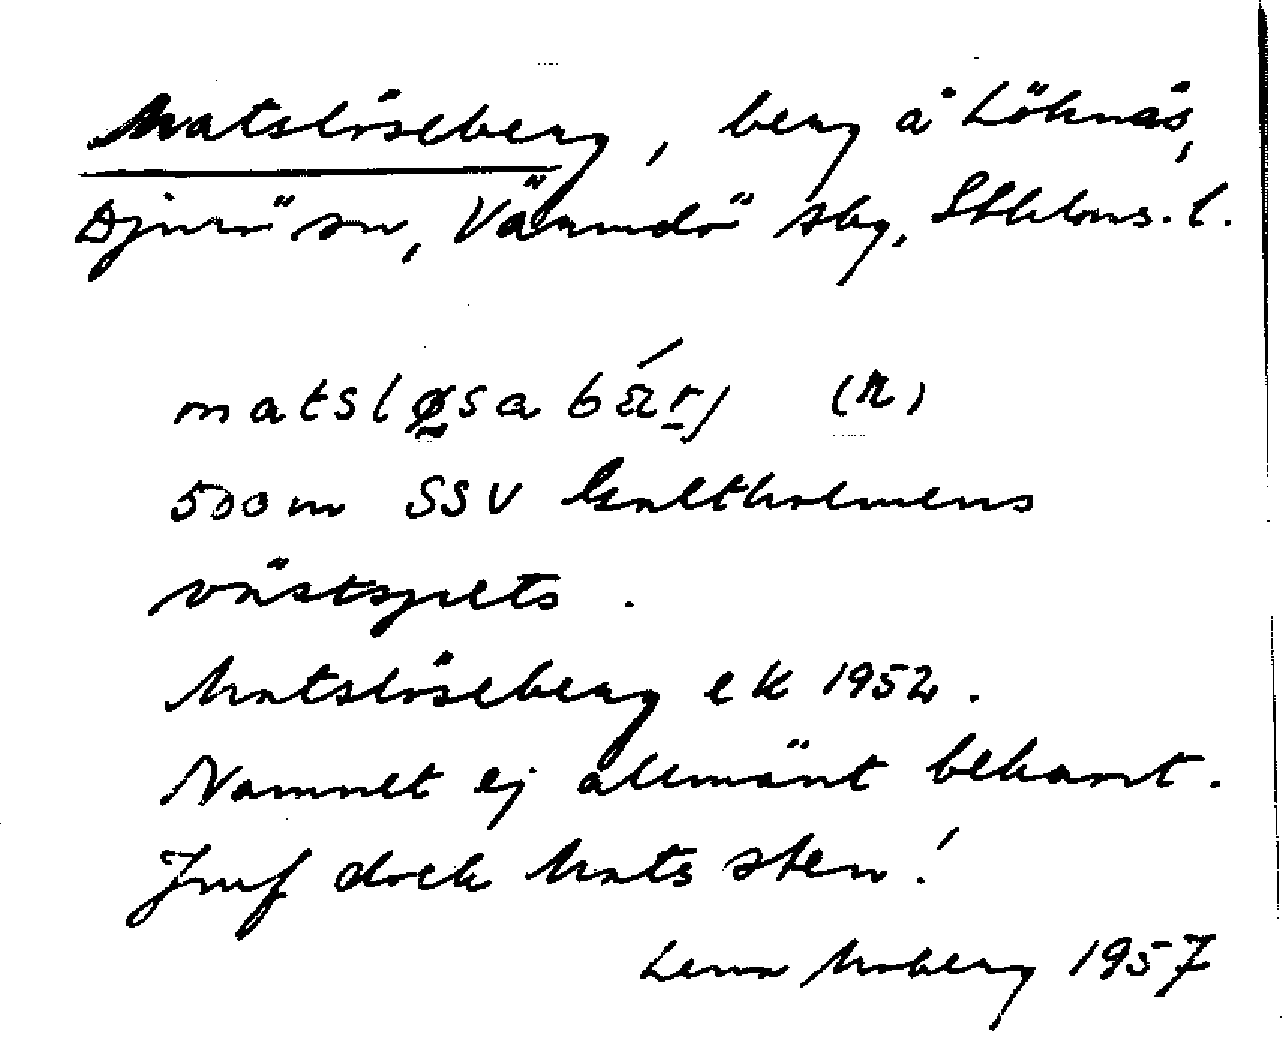 Matslöseberg, berg å Löknäs,
Djurö sn, Värmdö sbg, Sthlms. l.
matsløsa bær̠j (R)
500 m SSV Galtholmens
västspets.
Matslöseberg ek 1952.
Namnet ej allmänt bekant.
Jmf dock Mats sten!
Lena Moberg 1957